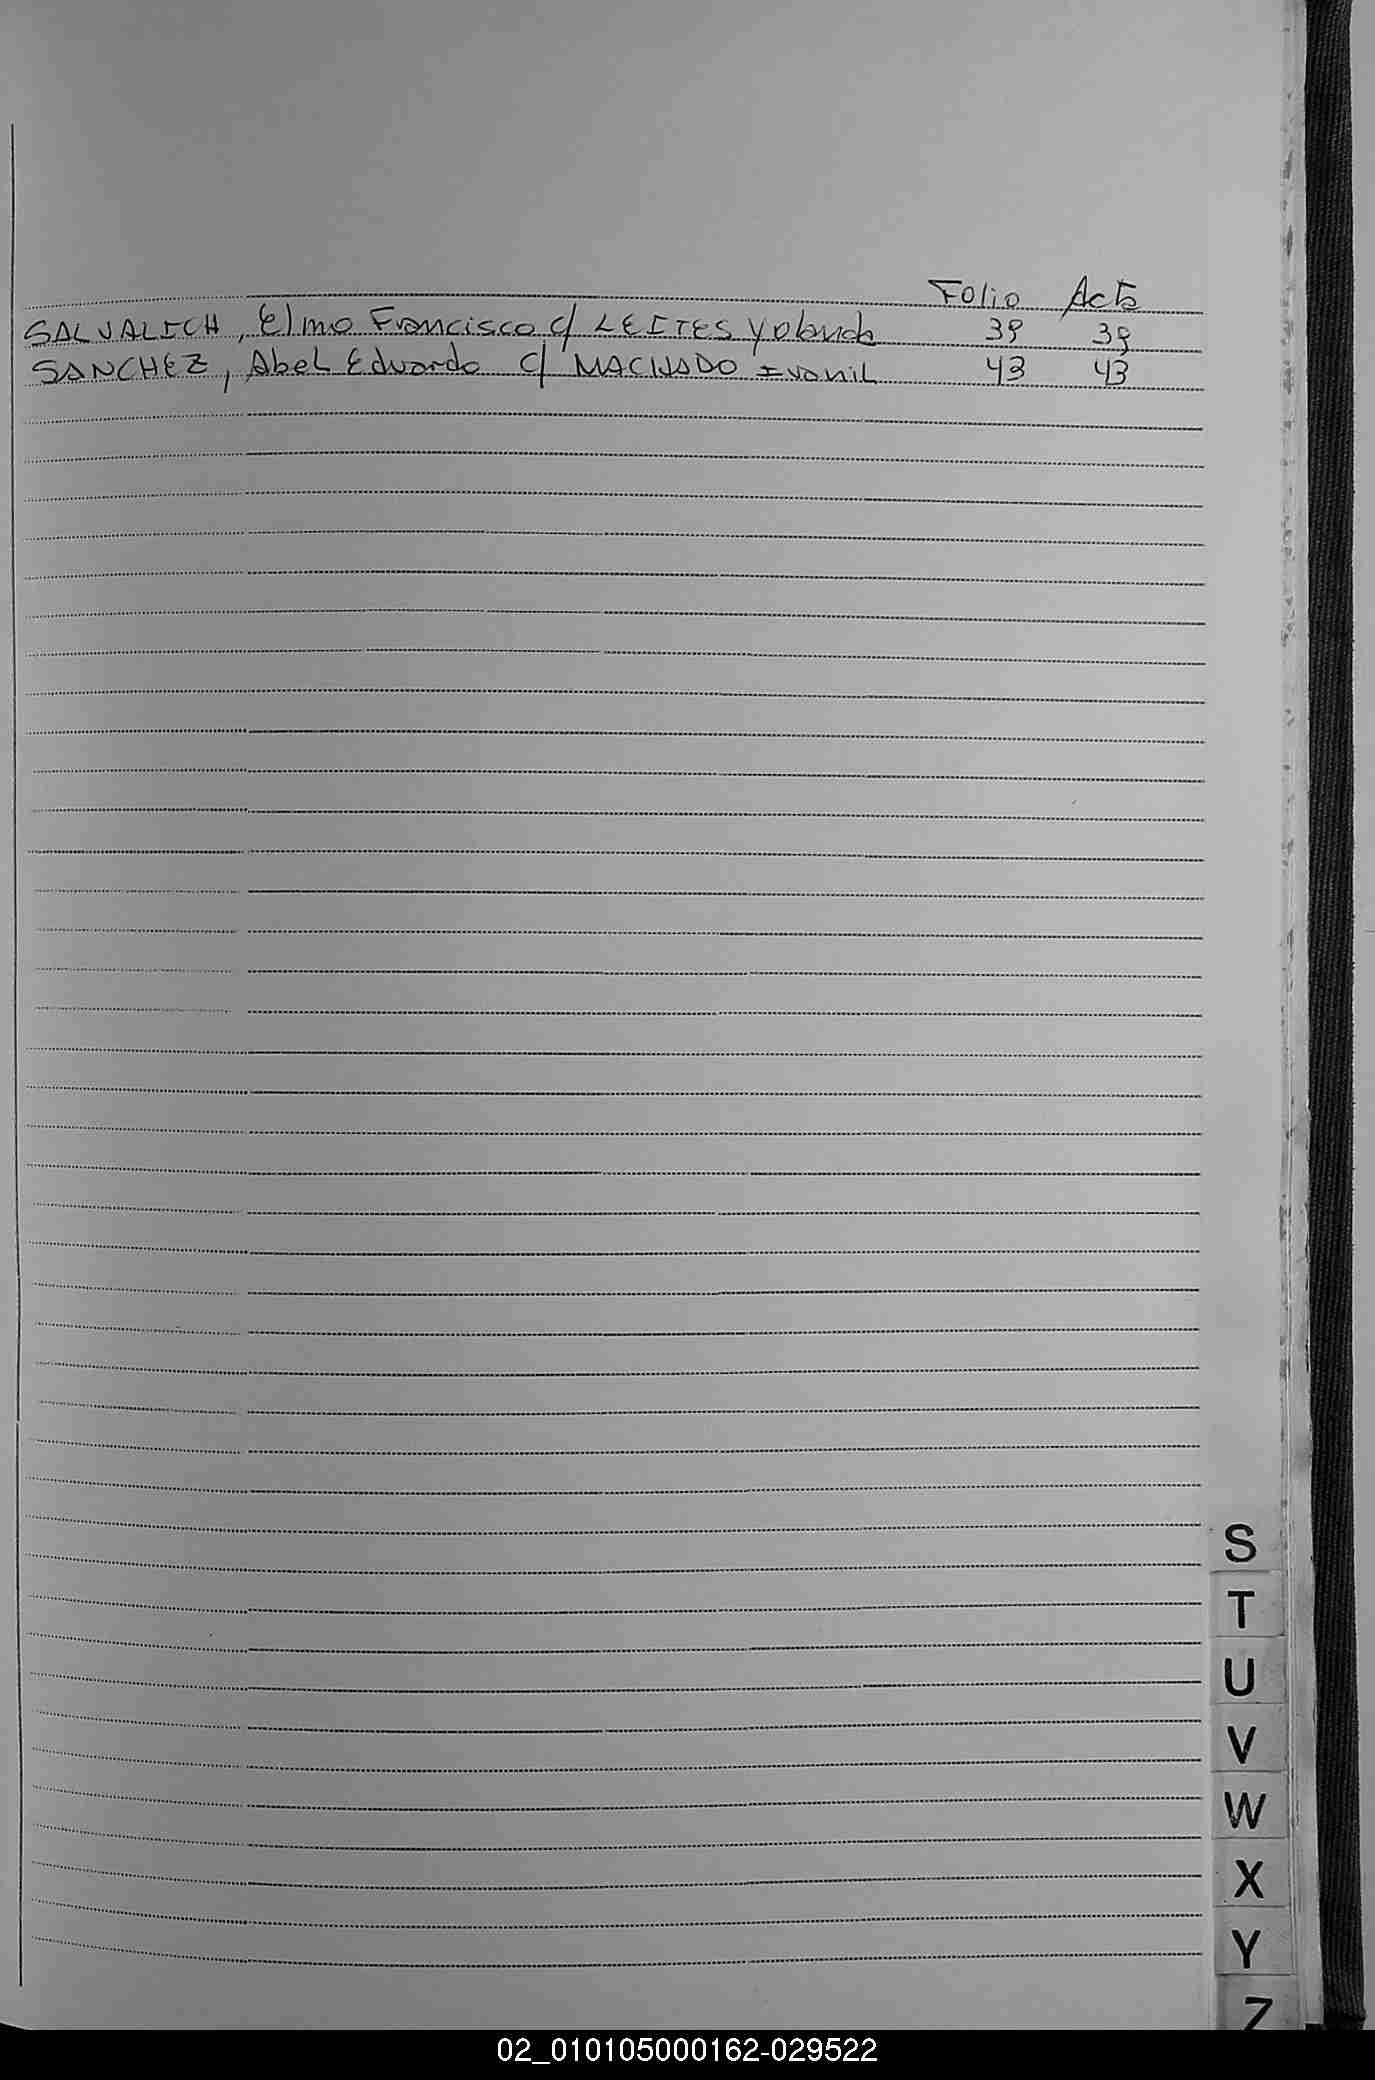 Folio Acta
SALVALICH, Elmo Francisco c/ LEITES Yolanda 39 39
SANCHEZ, Abel Eduardo c/ MACHADO Ivonil 43 43
S
T
U
V
W
X
Y
Z
02_010105000162-029522